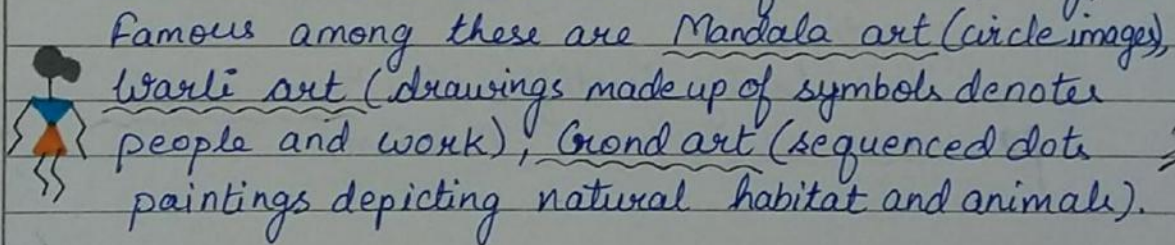 Famous among these are Mandala art (circle images),
Warli art (drawings made up of symbols denotes
people and work), Gond art (sequenced dots
paintings depicting natural habitat and animals).